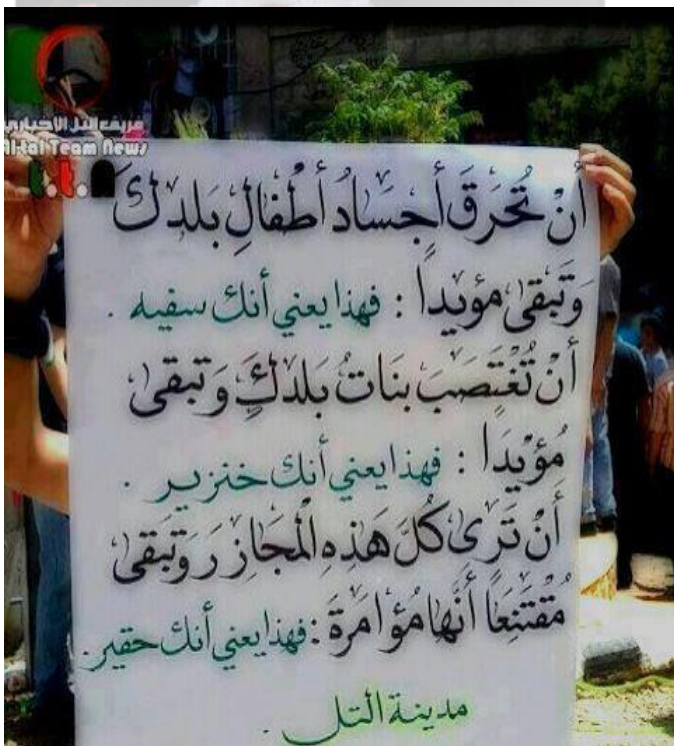 فريق التل الأخباري
Al-tal Team News
t.t.n
أَنْ تُحرَقَ أجسَادُ أطفَالِ بَلدِكَ
وَتبقىٰ مؤيداً : فهذا يعني أنك سفيه .
أَنْ تُغتَصَبَ بنَاتُ بَلدِكَ وَتبقىٰ
مُؤيدَاً : فهذا يعني أنك خنزير .
أَنْ تَرىٰ كُلَّ هَذهِ المجَازر وَتبقىٰ
مُقتَنِعَاً أنَّها مُؤامَرة : فهذا يعني أنك حقير .
مدينة التل .